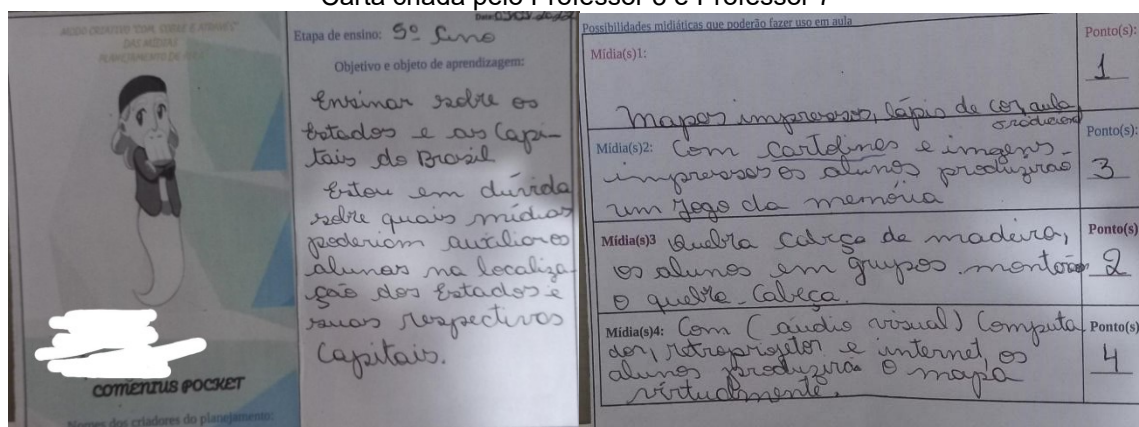 Carta criada pelo Professor 6 e Professor 7
MODO CRIATIVO "COM, SOBRE E ATRAVÉS"
DAS MÍDIAS
PLANEJAMENTO DE
COMENTUS POCKET
Nomes dos criadores do planejamento:
Etapa de ensino: 5º Ano
Objetivo e objeto de aprendizagem:
Ensinar sobre os
Estados e as Capi-
tais do Brasil
Estou em dúvida
sobre quais mídias
poderiam auxiliar os
alunos na localiza
ção dos Estados e
suas respectivas
Capitais.
Possibilidades midiáticas que poderão fazer uso em aula
Mídia(s)1:
Ponto(s):
1
Mapas impressos, lápis de cor, aula
Mídia(s)2: Com cartolinas e imagens
Ponto(s):
impressas os alunos produzirão
3
um jogo da memória
Mídia(s)3 Quebra cabeça de madeira,
Ponto(s)
os alunos em grupos montarão
2
o quebra-cabeça.
Mídia(s)4: Com (áudio visual) Computa
Ponto(s)
dor, retroprojetor e internet, os
alunos produzirão o mapa
4
virtualmente.